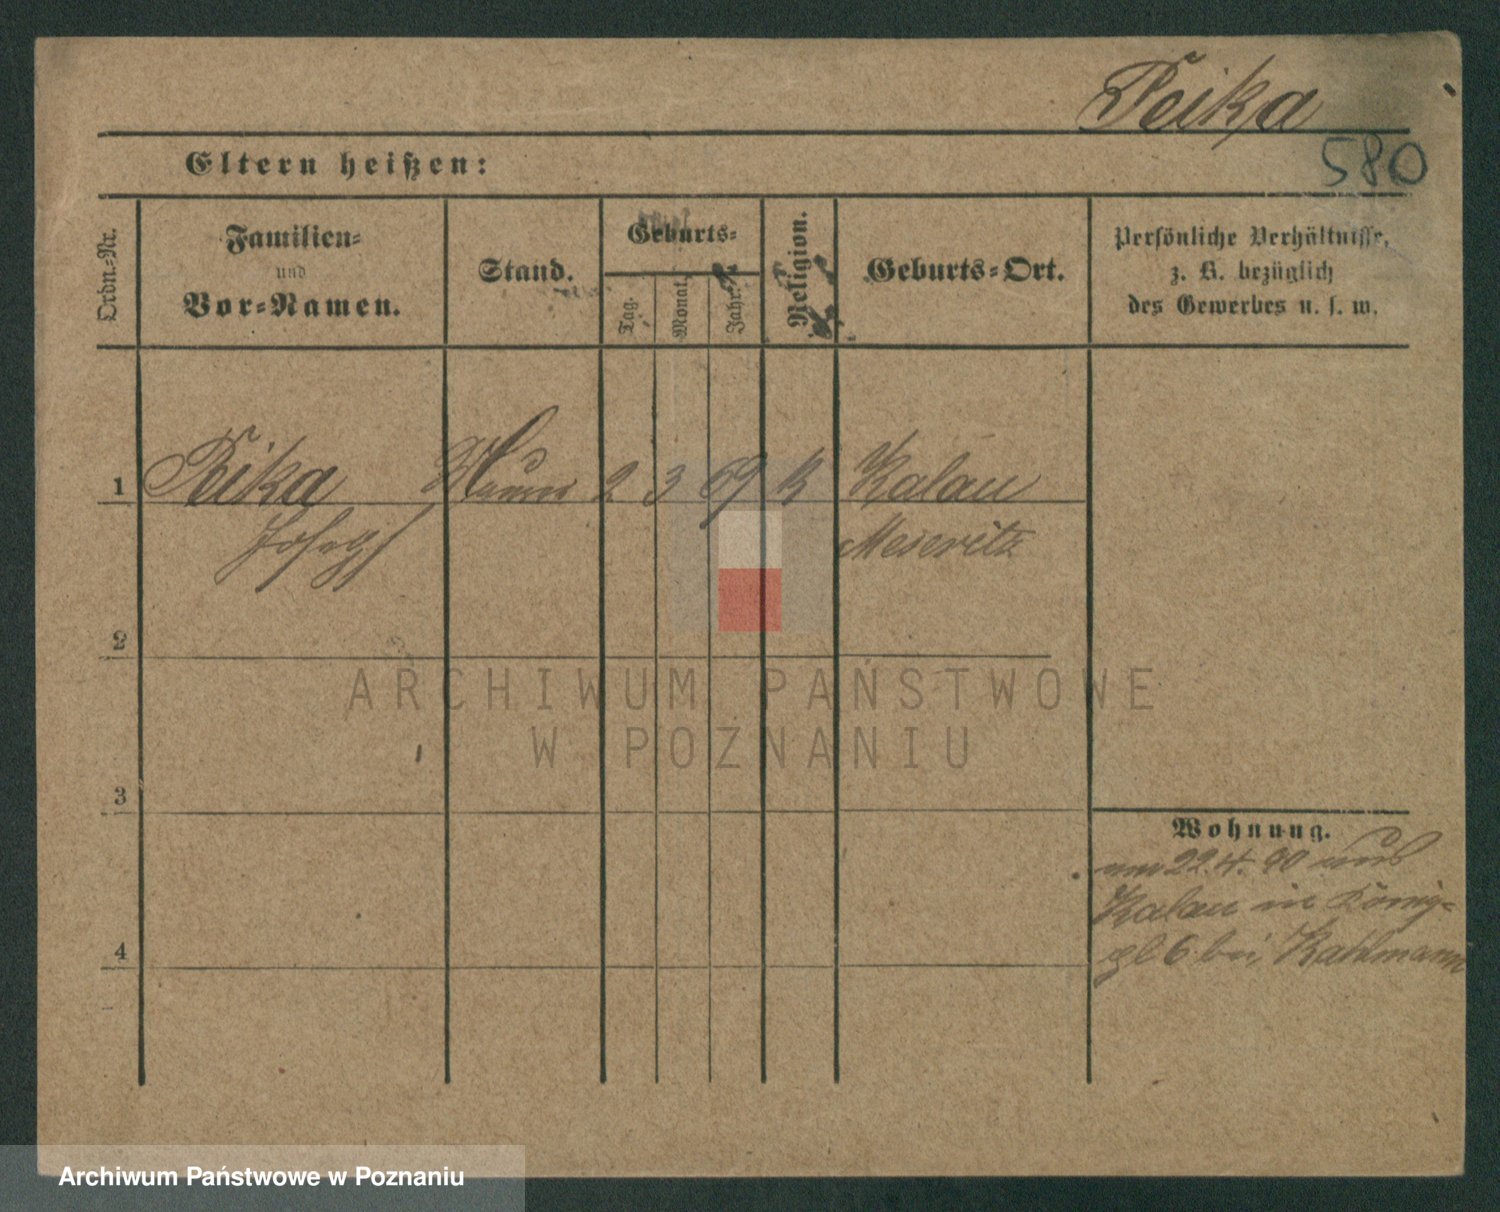 Peika
580
Eltern heißen:
Ordn.-Nr.
Familien-
und
Vor-Namen.
Stand.
Geburts-
Tag.
Monat.
Jahr.
Religion.
Geburts-Ort.
Persönliche Verhältnisse,
z. B. bezüglich
des Gewerbes u. s. w.
1 Peika 2 3 69 k Kalau
Josef Meseritz
2
ARCHIWUM PAŃSTWOWE
W POZNANIU
3
Wohnung.
am 22.4.90 aus
Kalau in König-
pl 6 bei Rathmann
4
Archiwum Państwowe w Poznaniu